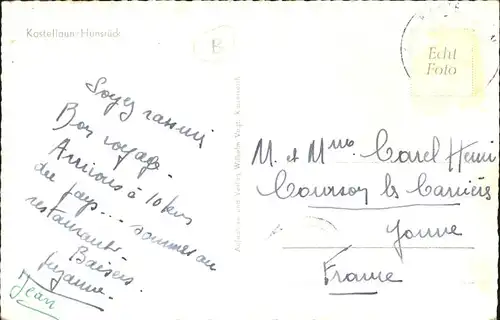 Kastellaun-Hunsrück
B
Echt
Foto
Soyez rassuri
Bon voyage -
Arrivons à 10 kms
du pays... sommes au
restaurant
Baisers.
Suzanne -
Jean
Aufnahme und Verlag Wilhelm Vogt, Kreuznach
M. et Mme Carel Henri
Courson les Carrières
Yonne
France